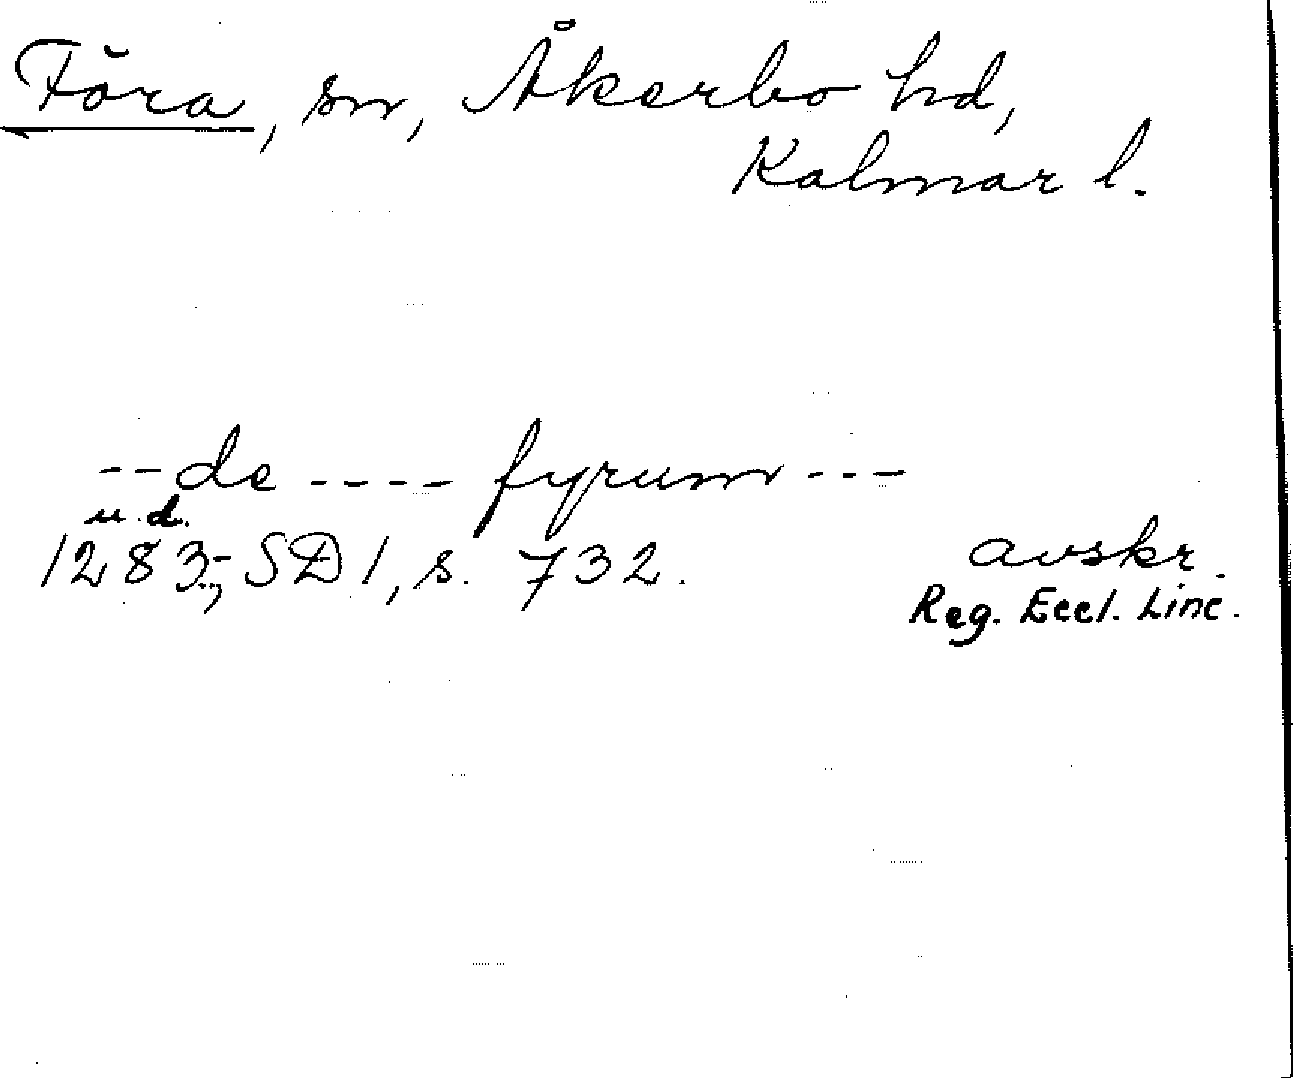 Föra, sn, Åkerbo hd,
Kalmar l.
--de ---- fyrum ---
u.d.
1283-, SD 1, s. 732.
avskr.
Reg. Eccl. Linc.